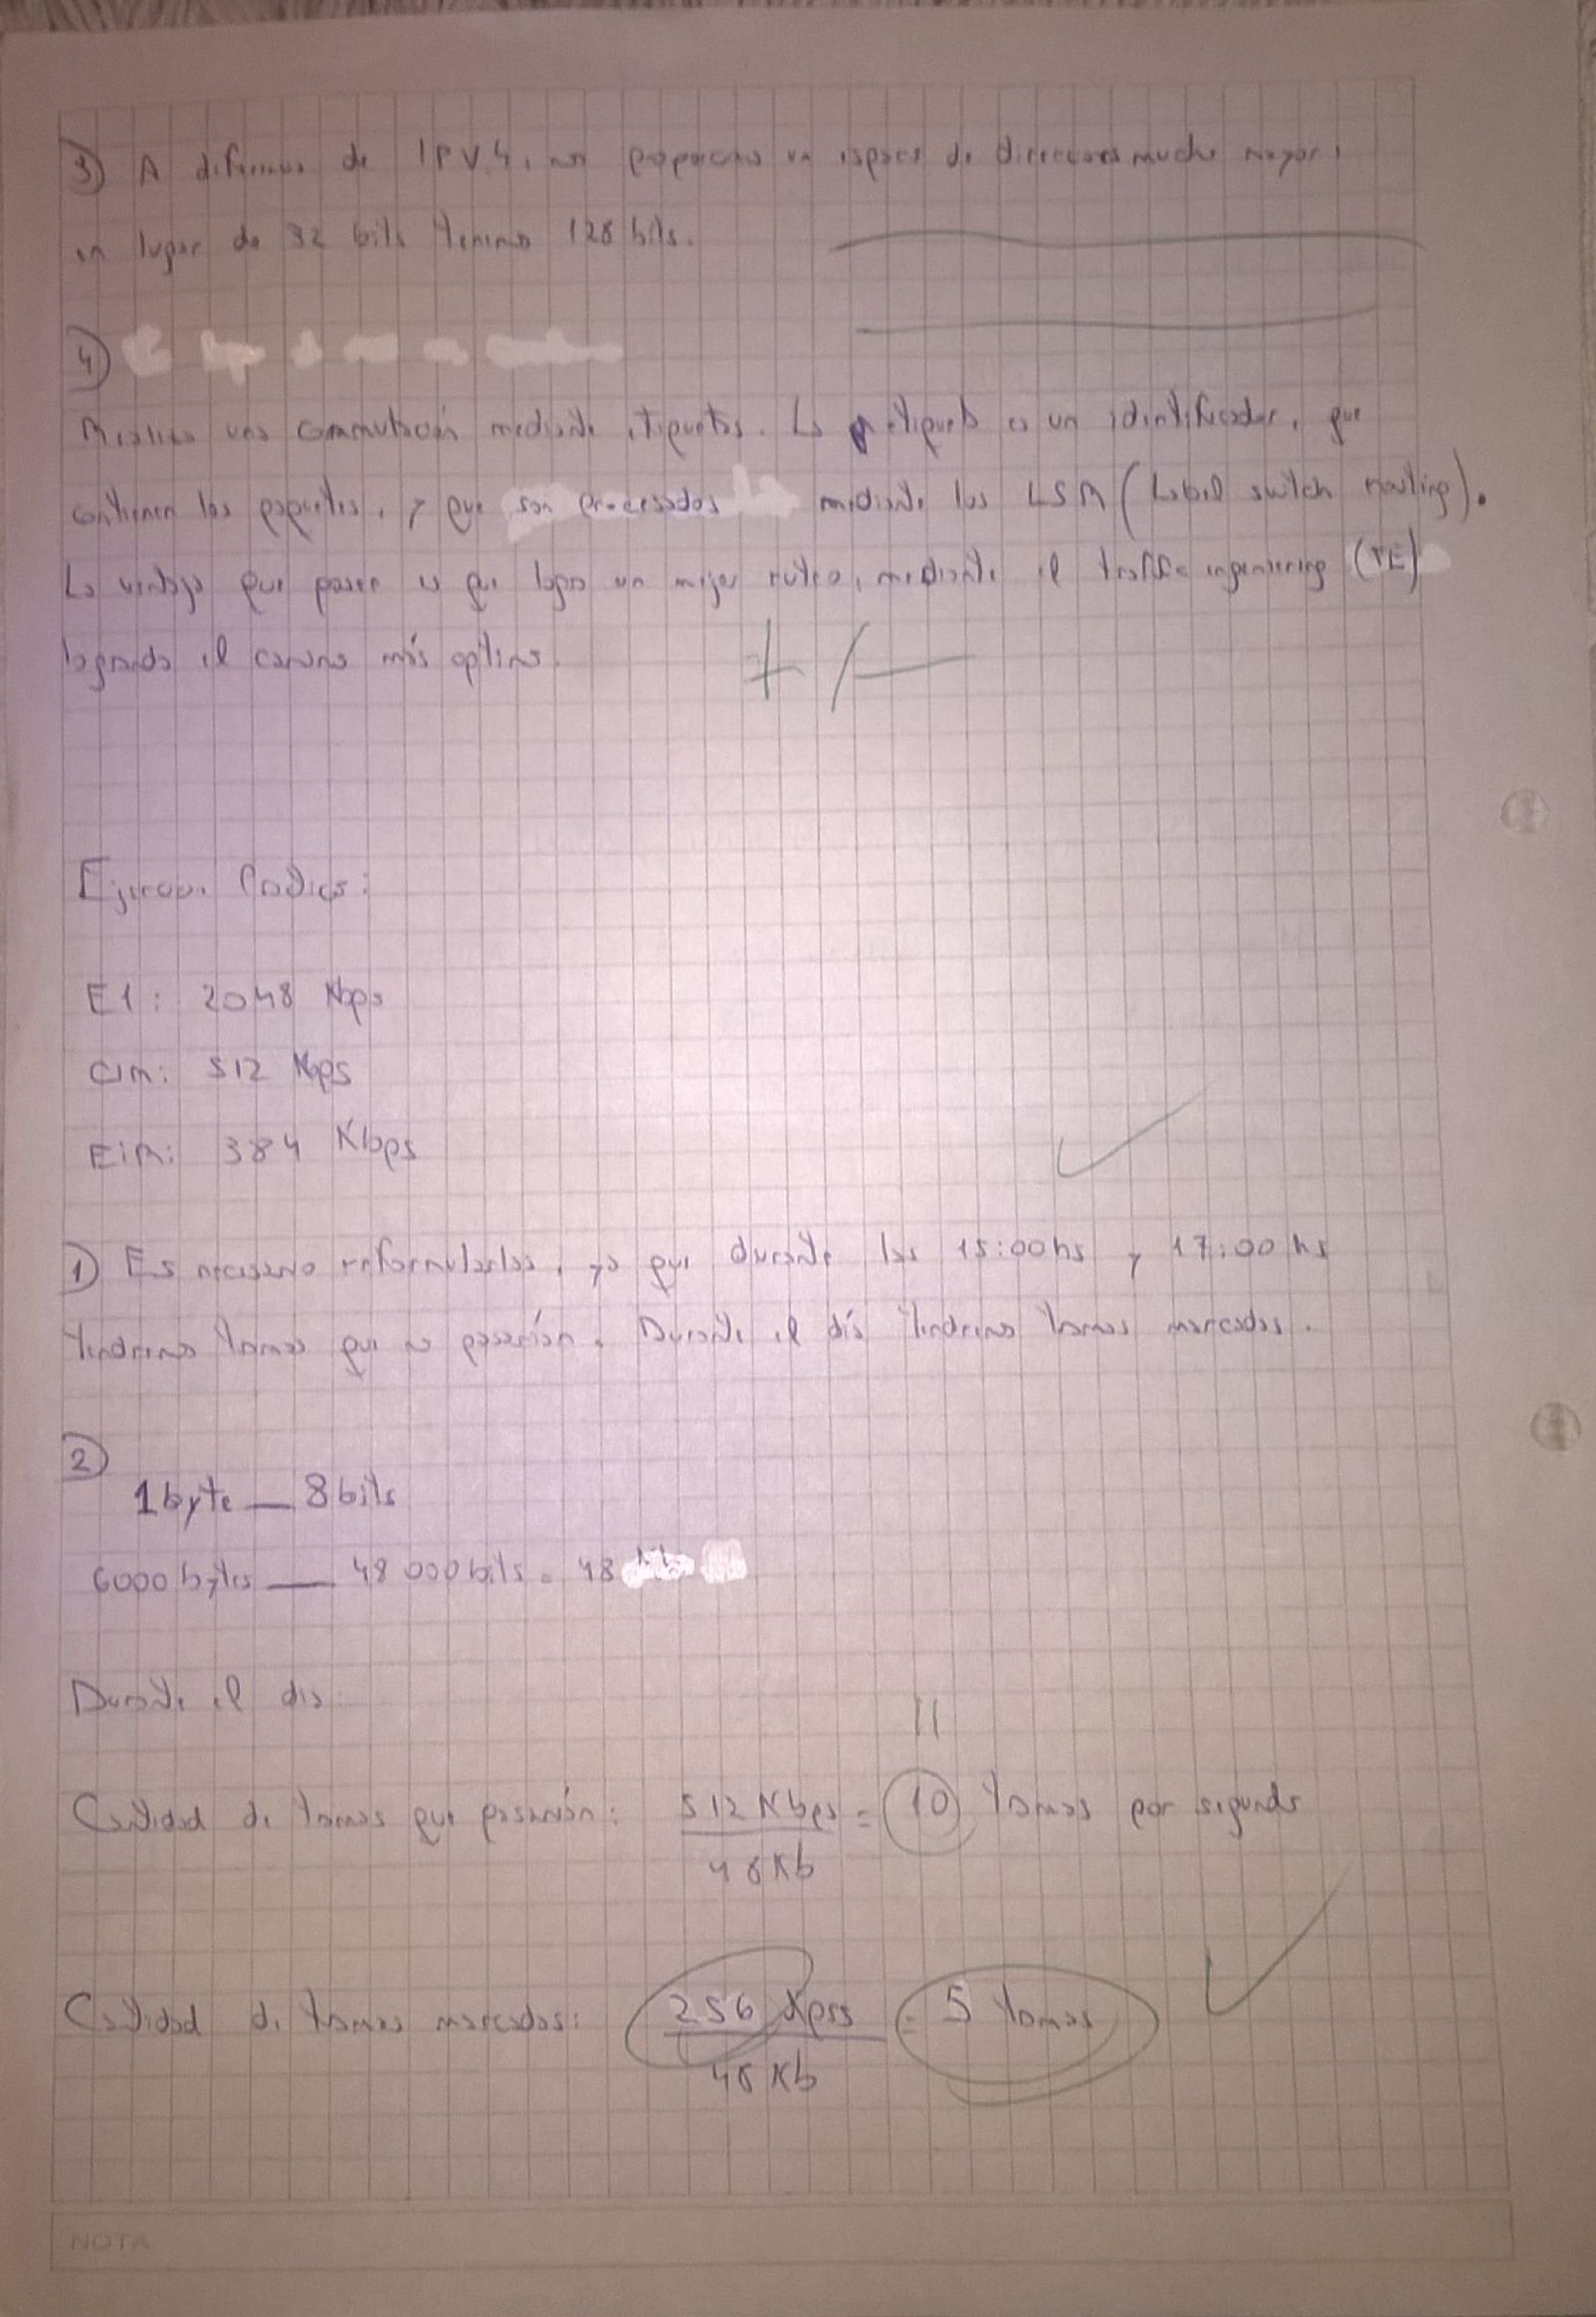 3) A diferencia de IPV4, nos proporciona un espacio de direcciones mucho mayor,
en lugar de 32 bits tenemos 128 bits.
4)
Realiza una conmutación mediante etiquetas. La etiqueta es un identificador, que
contienen los paquetes, y que son procesados mediante los LSR (Label switch Routing).
La ventaja que posee es que logra un mejor ruteo, mediante el traffic ingeniering (TE)
logrando el camino más optimo.
+/-
Ejercicio Practico:
E1: 2048 Kbps
CIR: 512 Kbps
EIR: 384 Kbps
1) Es necesario reformularlos, ya que durante las 15:00hs y 17:00 hs
tendremos tramas que no pasarán. Durante el día tendremos tramas marcadas.
2)
1 byte — 8 bits
6000 bytes — 48 000 bits = 48
Durante el dia
11
Cantidad de tramas que pasarán: 512 Kbps = 10 tramas por segundo
48 Kb
Cantidad de tramas marcadas: 256 Kpss = 5 tramas
48 Kb
NOTA